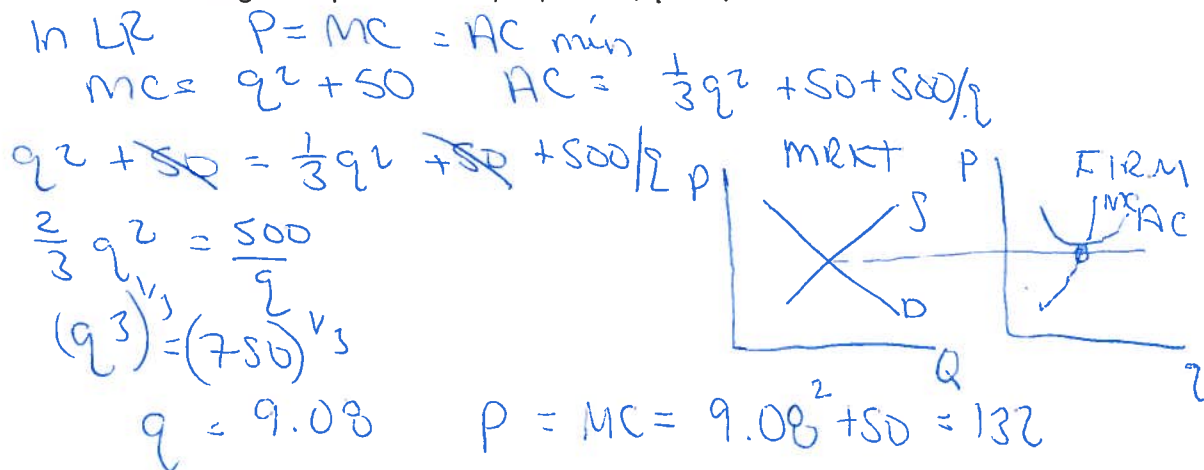 In LR P = MC = AC min
MC = q² + 50 AC = 1/3 q² + 50 + 500/q
q² + 50 = 1/3 q² + 50 + 500/q
2/3 q² = 500/q
(q³)^1/3 = (750)^1/3
q = 9.08 P = MC = 9.08² + 50 = 132
MRKT
P
S
D
Q
FIRM
P
MC
AC
q